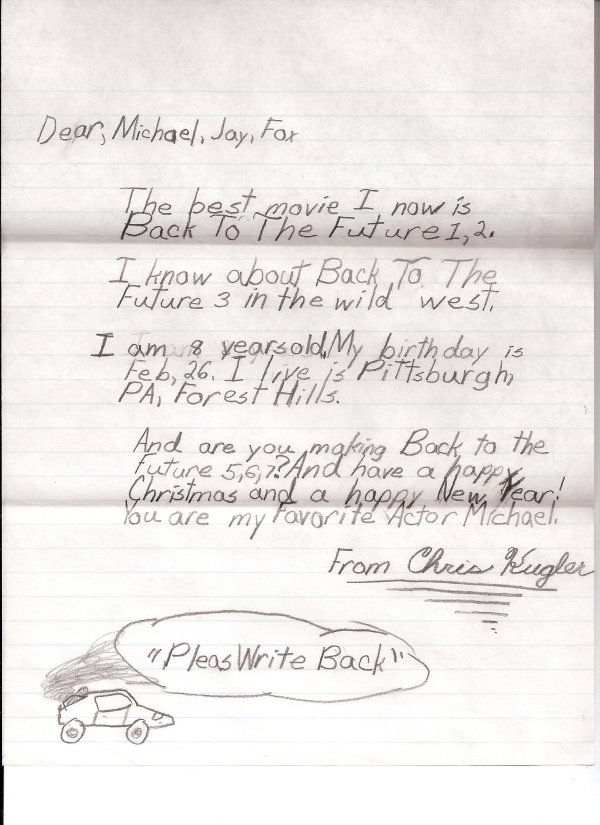 Dear, Michael, Jay, Fox
The best movie I now is
Back To The Future 1,2.
I know about Back To The
Future 3 in the wild west.
I am 8 years old. My birthday is
Feb, 26. I live is Pittsburgh,
PA, Forest Hills.
And are you making Back to the
Future 5,6,7? And have a happy
Christmas and a happy New Year!
You are my Favorite Actor Michael.
From Chris Kugler
"Pleas Write Back"